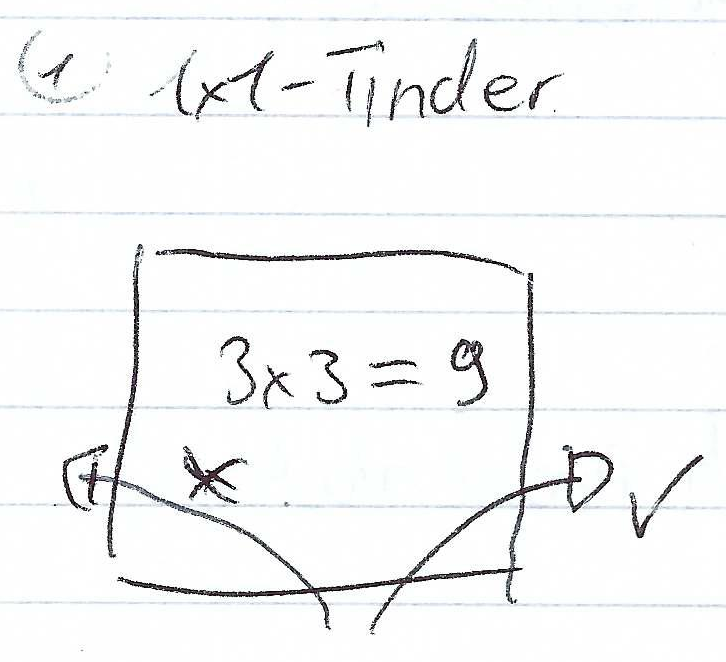 1 1x1-Tinder
3x3=9